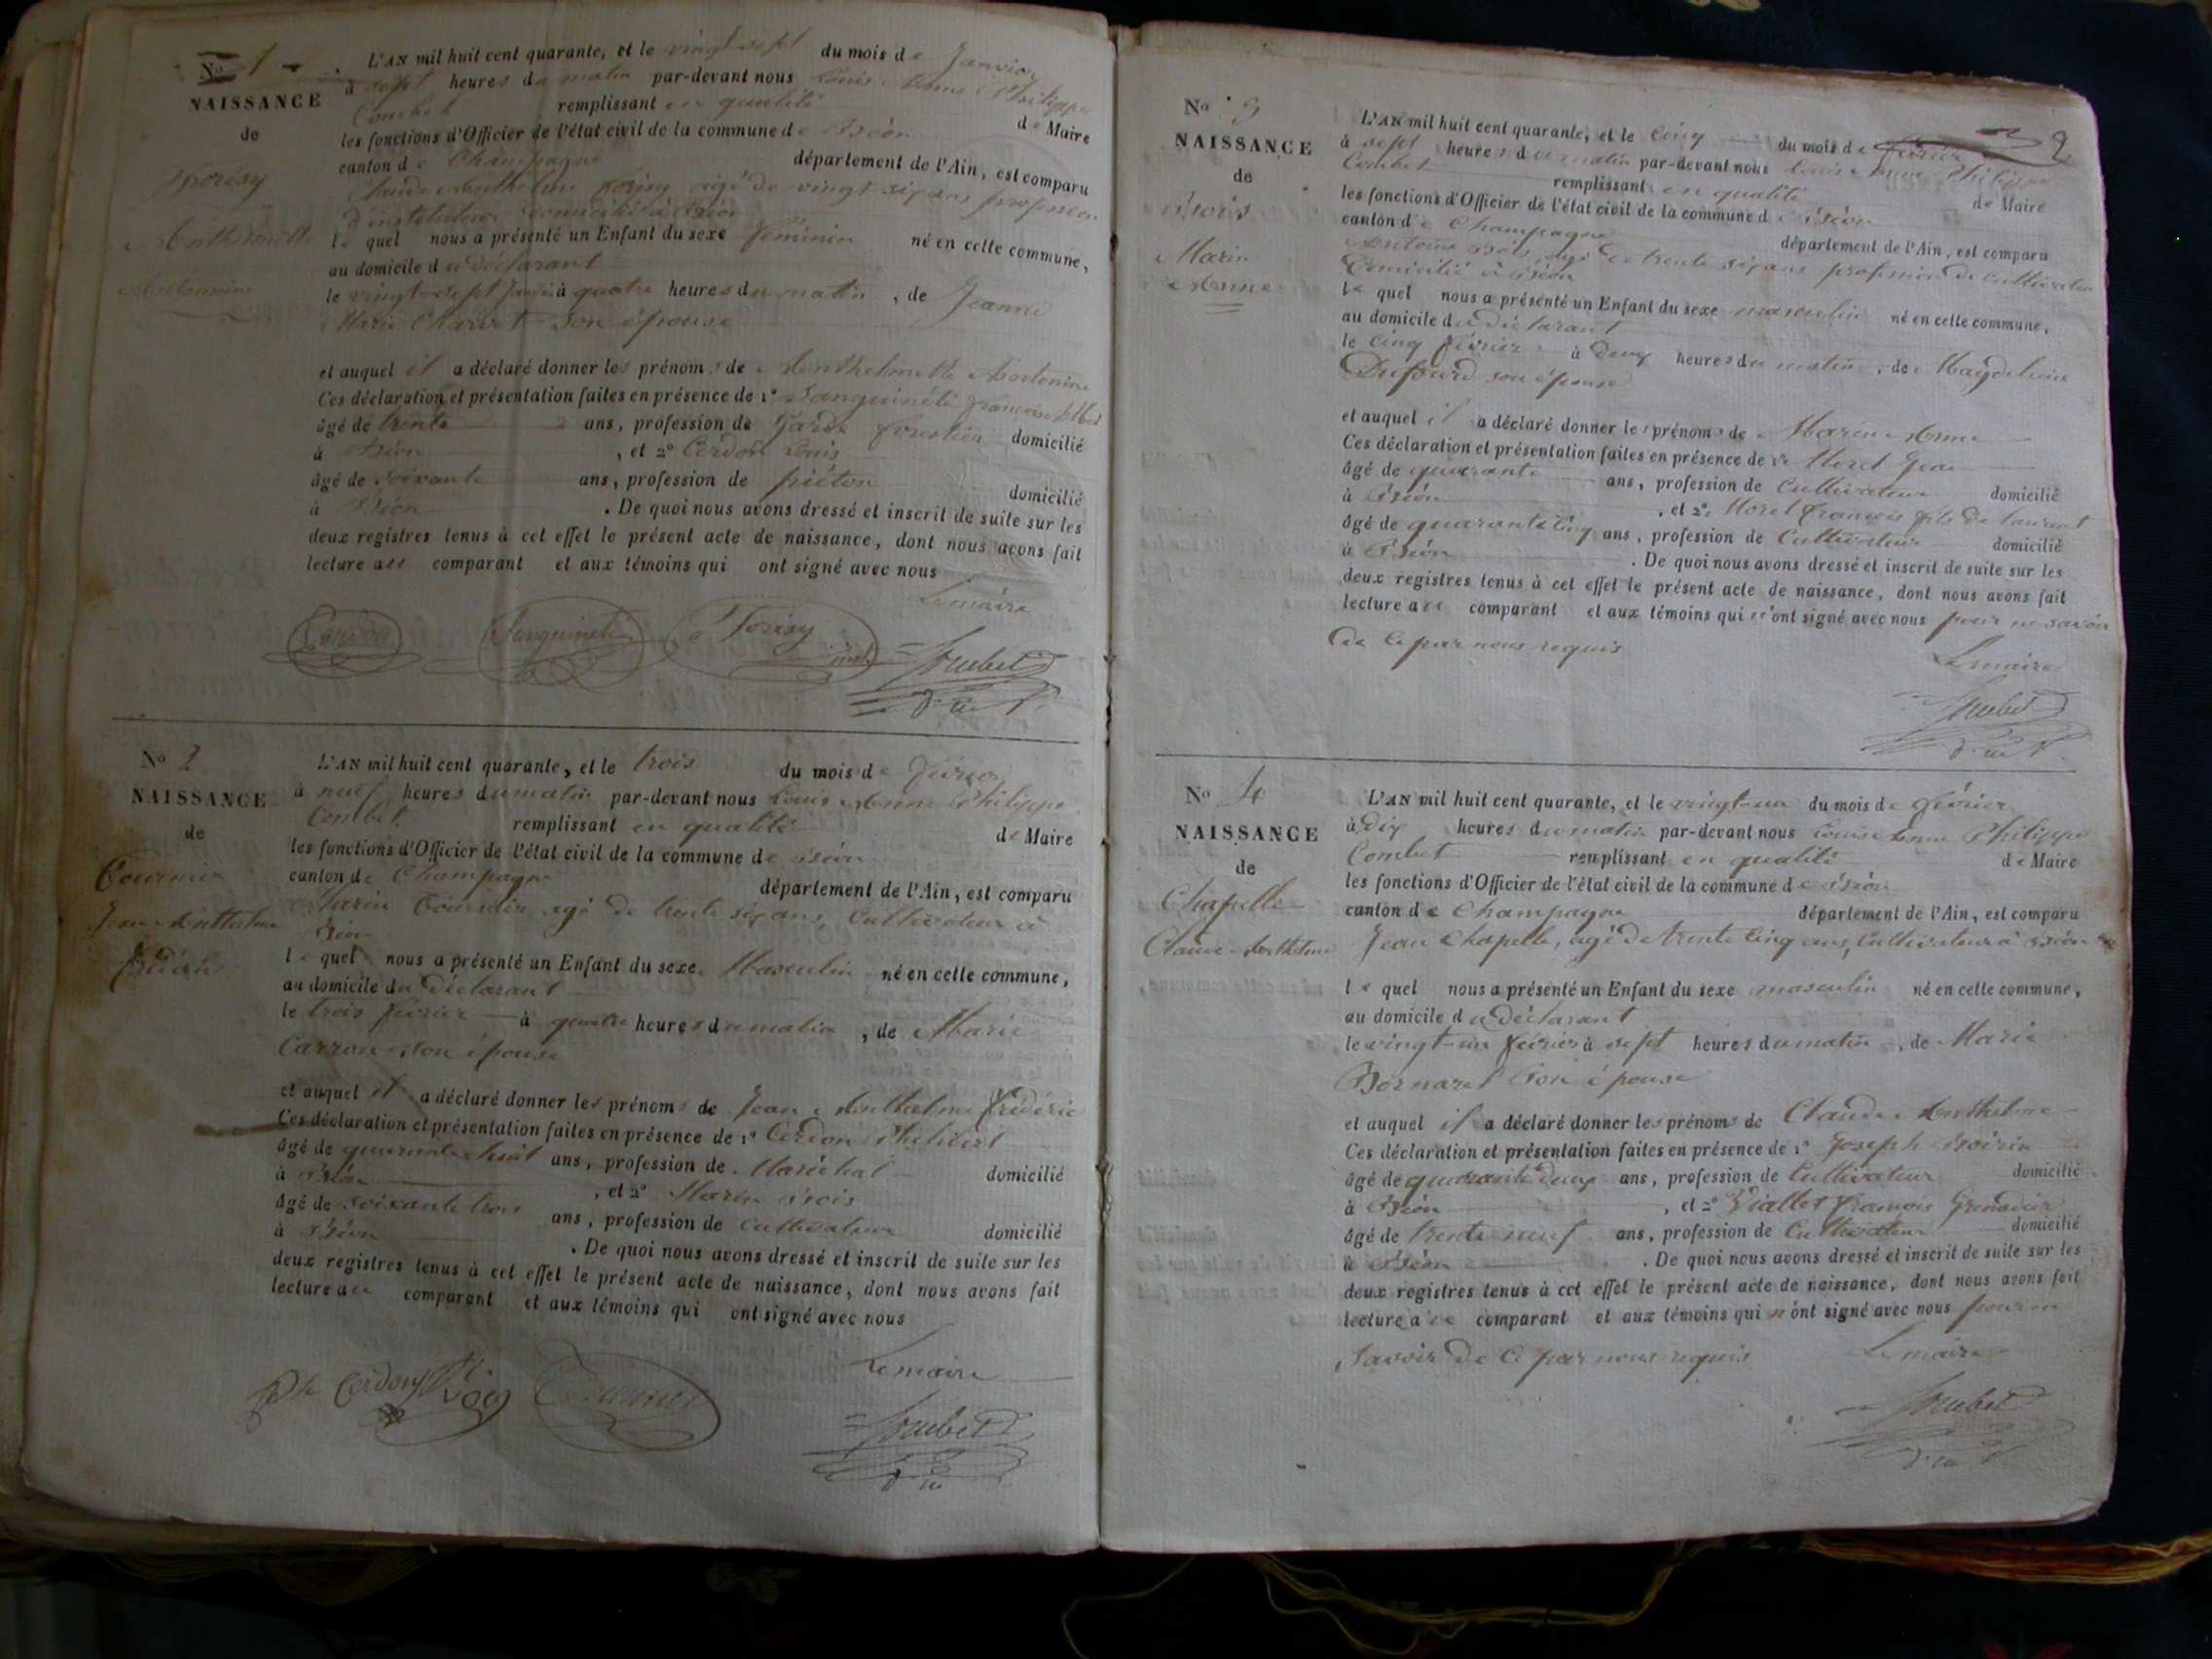 No 1
NAISSANCE
de
Antoinine
L'AN mil huit cent quarante, et le vingt sept du mois de Janvier
à sept heures du matin par-devant nous Louis Anne Philippe
Combet remplissant en qualité de Maire
les fonctions d'Officier de l'état civil de la commune de Béon
canton de Champagne département de l'Ain, est comparu
Claude Anthelme âgé de vingt six ans profession
d'instituteur domicilié à Béon
le quel nous a présenté un Enfant du sexe féminin né en cette commune,
au domicile du déclarant
le vingt-sept Janvier à quatre heures du matin, de Jeanne
Marie Charvet son épouse
et auquel il a déclaré donner les prénoms de Anthelmette
Ces déclaration et présentation faites en présence de 1° Sanguinéti François
âgé de trente ans, profession de Garde forestier domicilié
à Béon, et 2° Cerdon Louis
âgé de soixante ans, profession de piéton domicilié
à Béon. De quoi nous avons dressé et inscrit de suite sur les
deux registres tenus à cet effet le présent acte de naissance, dont nous avons fait
lecture au comparant et aux témoins qui ont signé avec nous
Le maire
Cerdon Sanguineti
No 2
NAISSANCE
de
Tournier
Jean Anthelme
Frédéric
L'AN mil huit cent quarante, et le trois du mois de février
à neuf heures du matin par-devant nous Louis Anne Philippe
Combet remplissant en qualité de Maire
les fonctions d'Officier de l'état civil de la commune de Béon
canton de Champagne département de l'Ain, est comparu
Marin Tournier, âgé de trente six ans, Cultivateur à
Béon
le quel nous a présenté un Enfant du sexe Masculin né en cette commune,
au domicile du Déclarant
le trois février à quatre heures du matin, de Marie
Carron son épouse
et auquel il a déclaré donner les prénoms de Jean Anthelme Frédéric
Ces déclaration et présentation faites en présence de 1° Cerdon Philibert
âgé de quarante huit ans, profession de Maréchal domicilié
à Béon, et 2° Marin
âgé de soixante trois ans, profession de cultivateur domicilié
à Béon. De quoi nous avons dressé et inscrit de suite sur les
deux registres tenus à cet effet le présent acte de naissance, dont nous avons fait
lecture au comparant et aux témoins qui ont signé avec nous
Le maire
Ph Cerdon
No 3
NAISSANCE
de
Marin
Anne
2
L'AN mil huit cent quarante, et le cinq du mois de février
à sept heures du matin par-devant nous Louis Anne Philippe
Combet remplissant en qualité de Maire
les fonctions d'Officier de l'état civil de la commune de Béon
canton de Champagne département de l'Ain, est comparu
Antoine âgé de trente six ans profession de cultivateur
Domicilié à Béon
le quel nous a présenté un Enfant du sexe masculin né en cette commune,
au domicile du déclarant
le cinq février à deux heures du matin, de Magdeleine
Dufourd son épouse
et auquel il a déclaré donner les prénoms de Marin Anne
Ces déclaration et présentation faites en présence de 1° Morel Jean
âgé de quarante ans, profession de Cultivateur domicilié
à Béon, et 2° Morel François fils de Laurent
âgé de quarante cinq ans, profession de Cultivateur domicilié
à Béon. De quoi nous avons dressé et inscrit de suite sur les
deux registres tenus à cet effet le présent acte de naissance, dont nous avons fait
lecture au comparant et aux témoins qui n'ont signé avec nous pour ne savoir
de ce par nous requis
Le maire
No 4
NAISSANCE
de
Chapelle
Claude Anthelme
L'AN mil huit cent quarante, et le vingt-un du mois de février
à dix heures du matin par-devant nous Louis Anne Philippe
Combet remplissant en qualité de Maire
les fonctions d'Officier de l'état civil de la commune de Béon
canton de Champagne département de l'Ain, est comparu
Jean Chapelle, âgé de trente cinq ans, Cultivateur à Béon
le quel nous a présenté un Enfant du sexe masculin né en cette commune,
au domicile du Déclarant
le vingt-un février à sept heures du matin, de Marie
Bornarel son épouse
et auquel il a déclaré donner les prénoms de Claude Anthelme
Ces déclaration et présentation faites en présence de 1° Joseph
âgé de quarante deux ans, profession de Cultivateur domicilié
à Béon, et 2° Viallet François Grenadier
âgé de trente neuf ans, profession de Cultivateur domicilié
à Béon. De quoi nous avons dressé et inscrit de suite sur les
deux registres tenus à cet effet le présent acte de naissance, dont nous avons fait
lecture au comparant et aux témoins qui n'ont signé avec nous pour ne
savoir de ce par nous requis Le maire